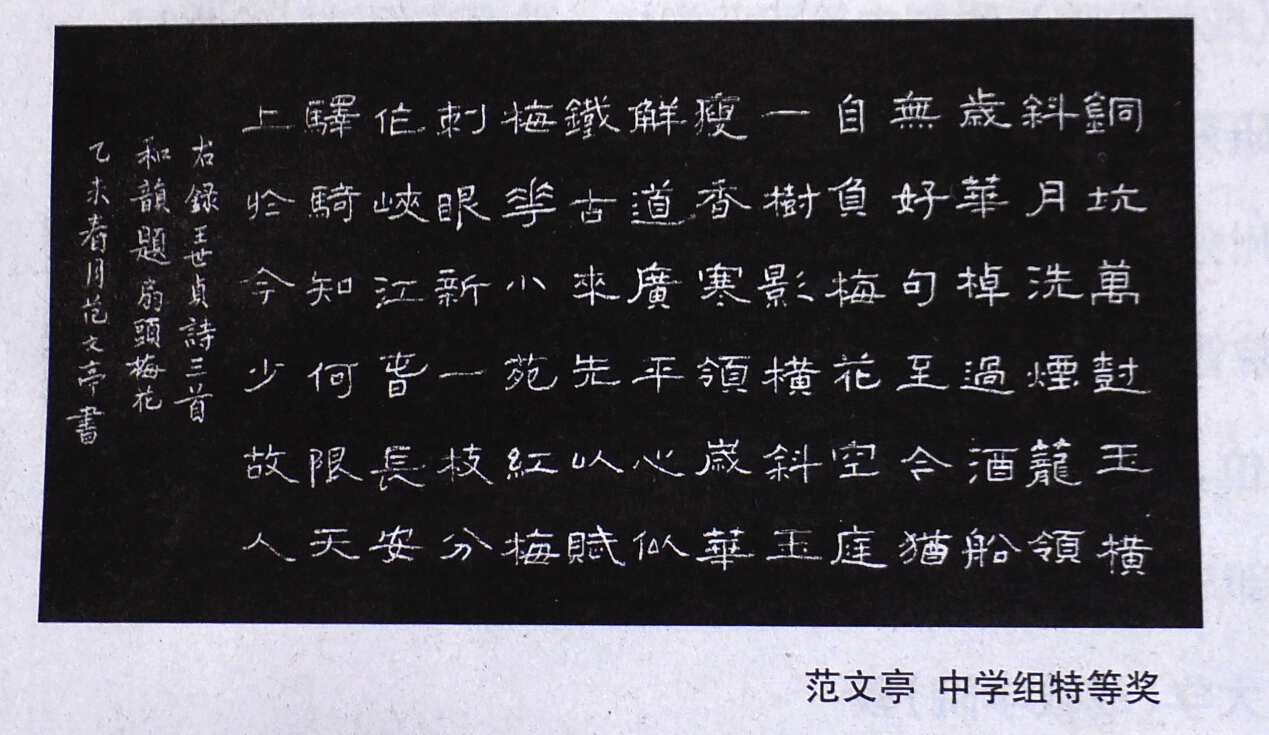 銅坑萬尌玉橫
斜月洗煙籠領
歲華棹過酒船
無好句至今猶
自負梅花空庭
一樹影橫斜玉
瘦香寒領歲華
解道廣平心似
鐵古來先以賦
梅花小苑紅梅
刺眼新一枝分
作峽江旾長安
驛騎知何限天
上於今少故人
右錄王世貞詩三首
和韻題扇頭梅花
乙未春月范文亭書
范文亭 中学组特等奖